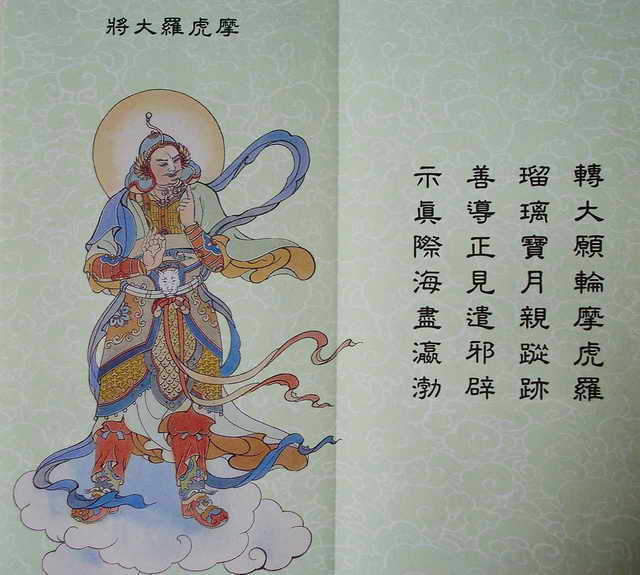 摩虎羅大將
轉大願輪摩虎羅
瑠璃寶月親蹤跡
善導正見遣邪辟
示眞際海盡瀛渤